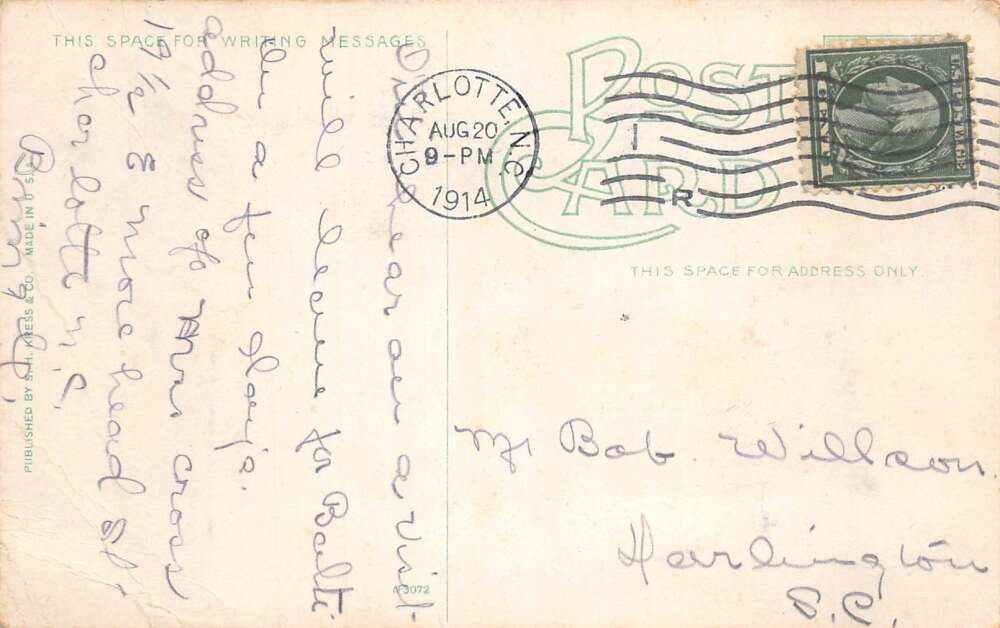 THIS SPACE FOR WRITING MESSAGES
am hear on a visit
will leave for Balti
in a few days.
address of Mrs Cross
19½ E more head St.
Charlotte N.C.
PUBLISHED BY S.H. KRESS & CO. MADE IN U.S.
A-3072
POST CARD
CHARLOTTE, N.C.
AUG 20
9-PM
1914
1
R
THIS SPACE FOR ADDRESS ONLY.
Mr Bob Willson.
Darlington
S.C.